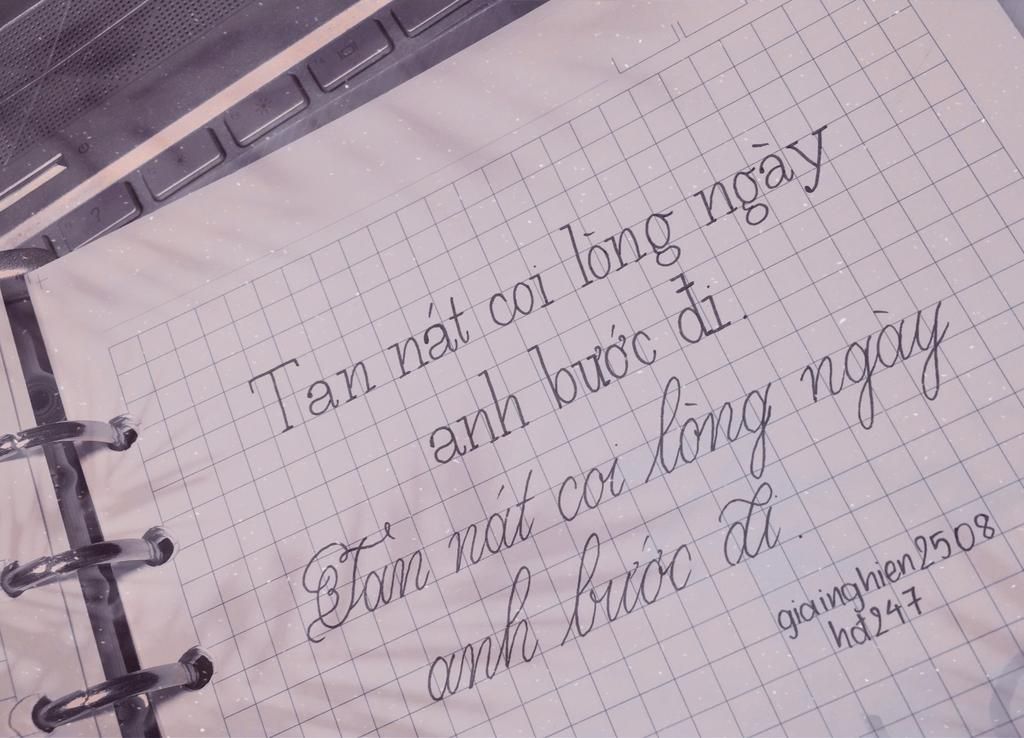 Tan nát coi lòng ngày
anh bước đi.
Tan nát coi lòng ngày
anh bước đi.
giainghien2508
hot247